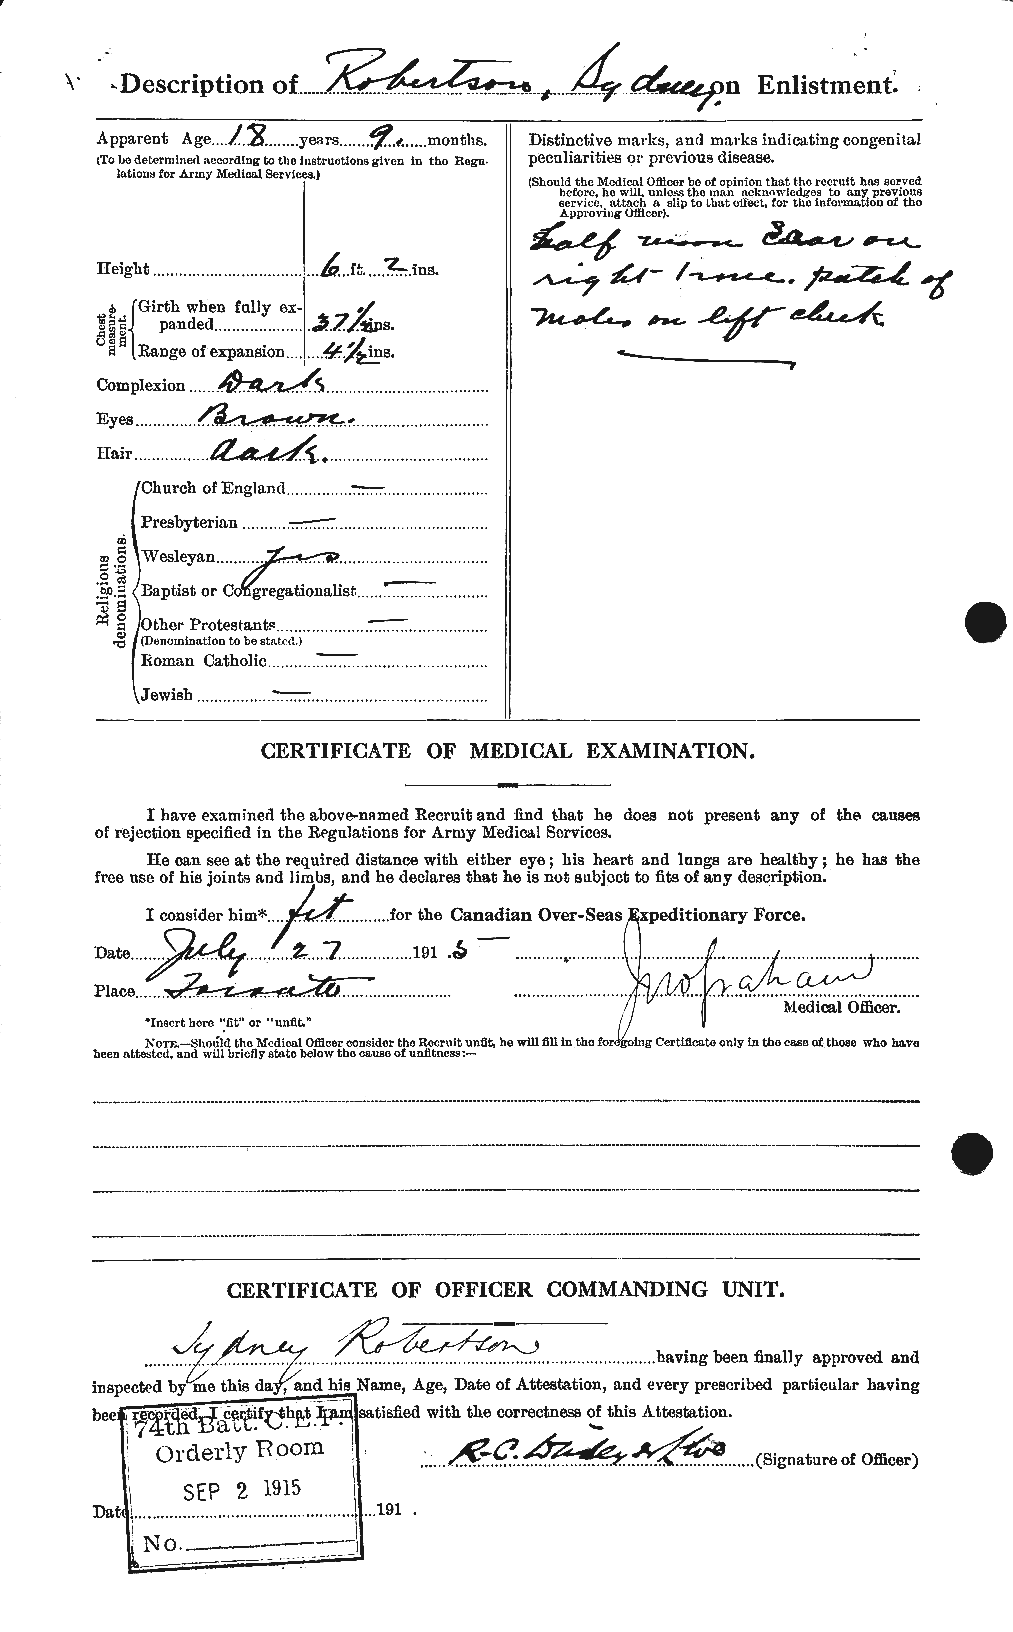 Description of Robertson, Sydney. on Enlistment.
Apparent Age 18 years 9 months.
(To be determined according to the instructions given in the Regu-
lations for Army Medical Services.)
Height 6 ft. 2 ins.
Chest measure-ment.
Girth when fully ex-
panded 37 1/2 ins.
Range of expansion 4 1/2 ins.
Complexion Dark
Eyes Brown.
Hair dark.
Religious denominations.
Church of England —
Presbyterian —
Wesleyan yes
Baptist or Congregationalist —
Other Protestants —
(Denomination to be stated.)
Roman Catholic —
Jewish —
Distinctive marks, and marks indicating congenital
peculiarities or previous disease.
(Should the Medical Officer be of opinion that the recruit has served
before, he will, unless the man acknowledges to any previous
service, attach a slip to that effect, for the information of the
Approving Officer).
half moon Scar on
right knee. patch of
moles on left cheek
CERTIFICATE OF MEDICAL EXAMINATION.
I have examined the above-named Recruit and find that he does not present any of the causes
of rejection specified in the Regulations for Army Medical Services.
He can see at the required distance with either eye; his heart and lungs are healthy; he has the
free use of his joints and limbs, and he declares that he is not subject to fits of any description.
I consider him* fit for the Canadian Over-Seas Expeditionary Force.
Date July 27 1915
Place Toronto
Graham
Medical Officer.
*Insert here "fit" or "unfit."
NOTE.—Should the Medical Officer consider the Recruit unfit, he will fill in the foregoing Certificate only in the case of those who have
been attested, and will briefly state below the cause of unfitness:—
CERTIFICATE OF OFFICER COMMANDING UNIT.
Sydney Robertson having been finally approved and
inspected by me this day, and his Name, Age, Date of Attestation, and every prescribed particular having
been recorded, I certify that I am satisfied with the correctness of this Attestation.
R.C. (Signature of Officer)
74th Batt. C.E.F.
Orderly Room
SEP 2 1915
Date 191 .
No.